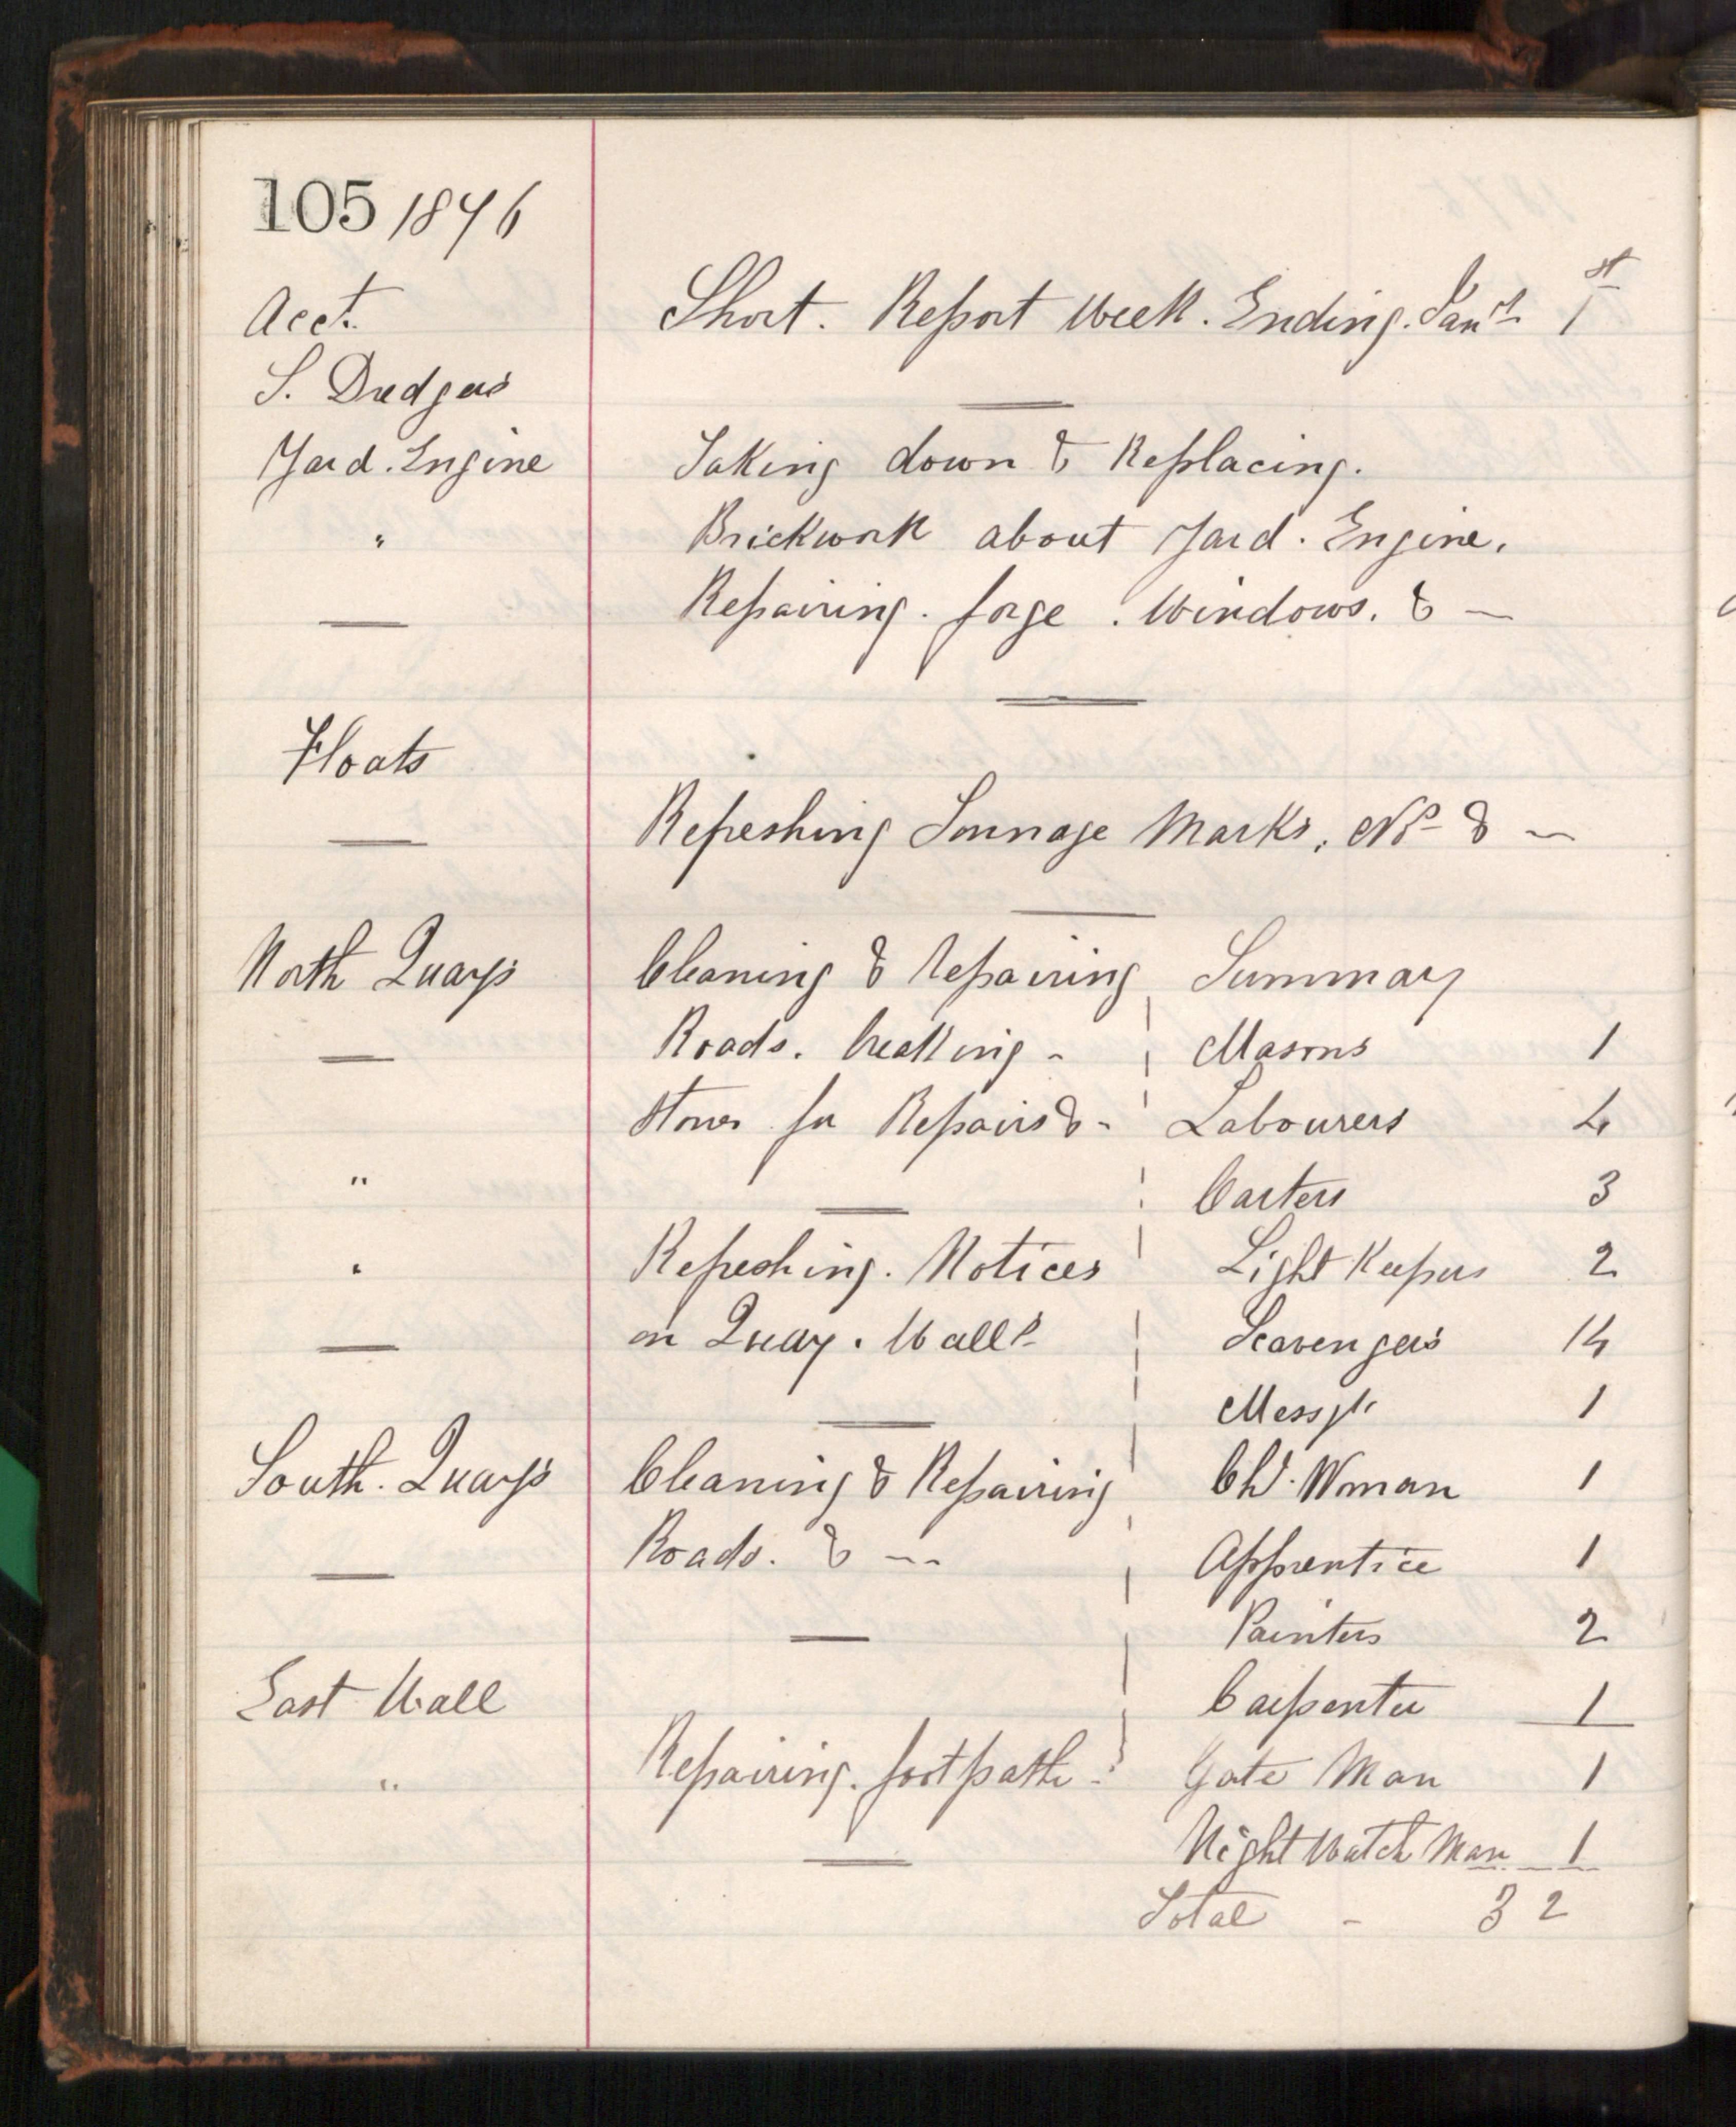 105 1876
Acct. Short. Report Week. Ending. Jany 1st
S. Dredgers
Yard. Engine Taking down & Replacing.
" Brickwork about Yard. Engine.
Repairing. forge. Windows. & —
Floats
Refreshing Tonnage Marks, No & —
North Quays Cleaning & Repairing Summary
Roads. breaking - Masons 1
Stones for Repairs & - Labourers 4
" Carters 3
" Refreshing. Notices Light Keepers 2
on Quay. Walls Scavengers 14
Messgr. 1
South. Quays Cleaning & Repairing Ch. Woman 1
Roads. & -- Apprentice 1
Painters 2
East Wall Carpenter 1
" Repairing. footpath - Gate Man 1
Night Watch Man 1
Total - 32